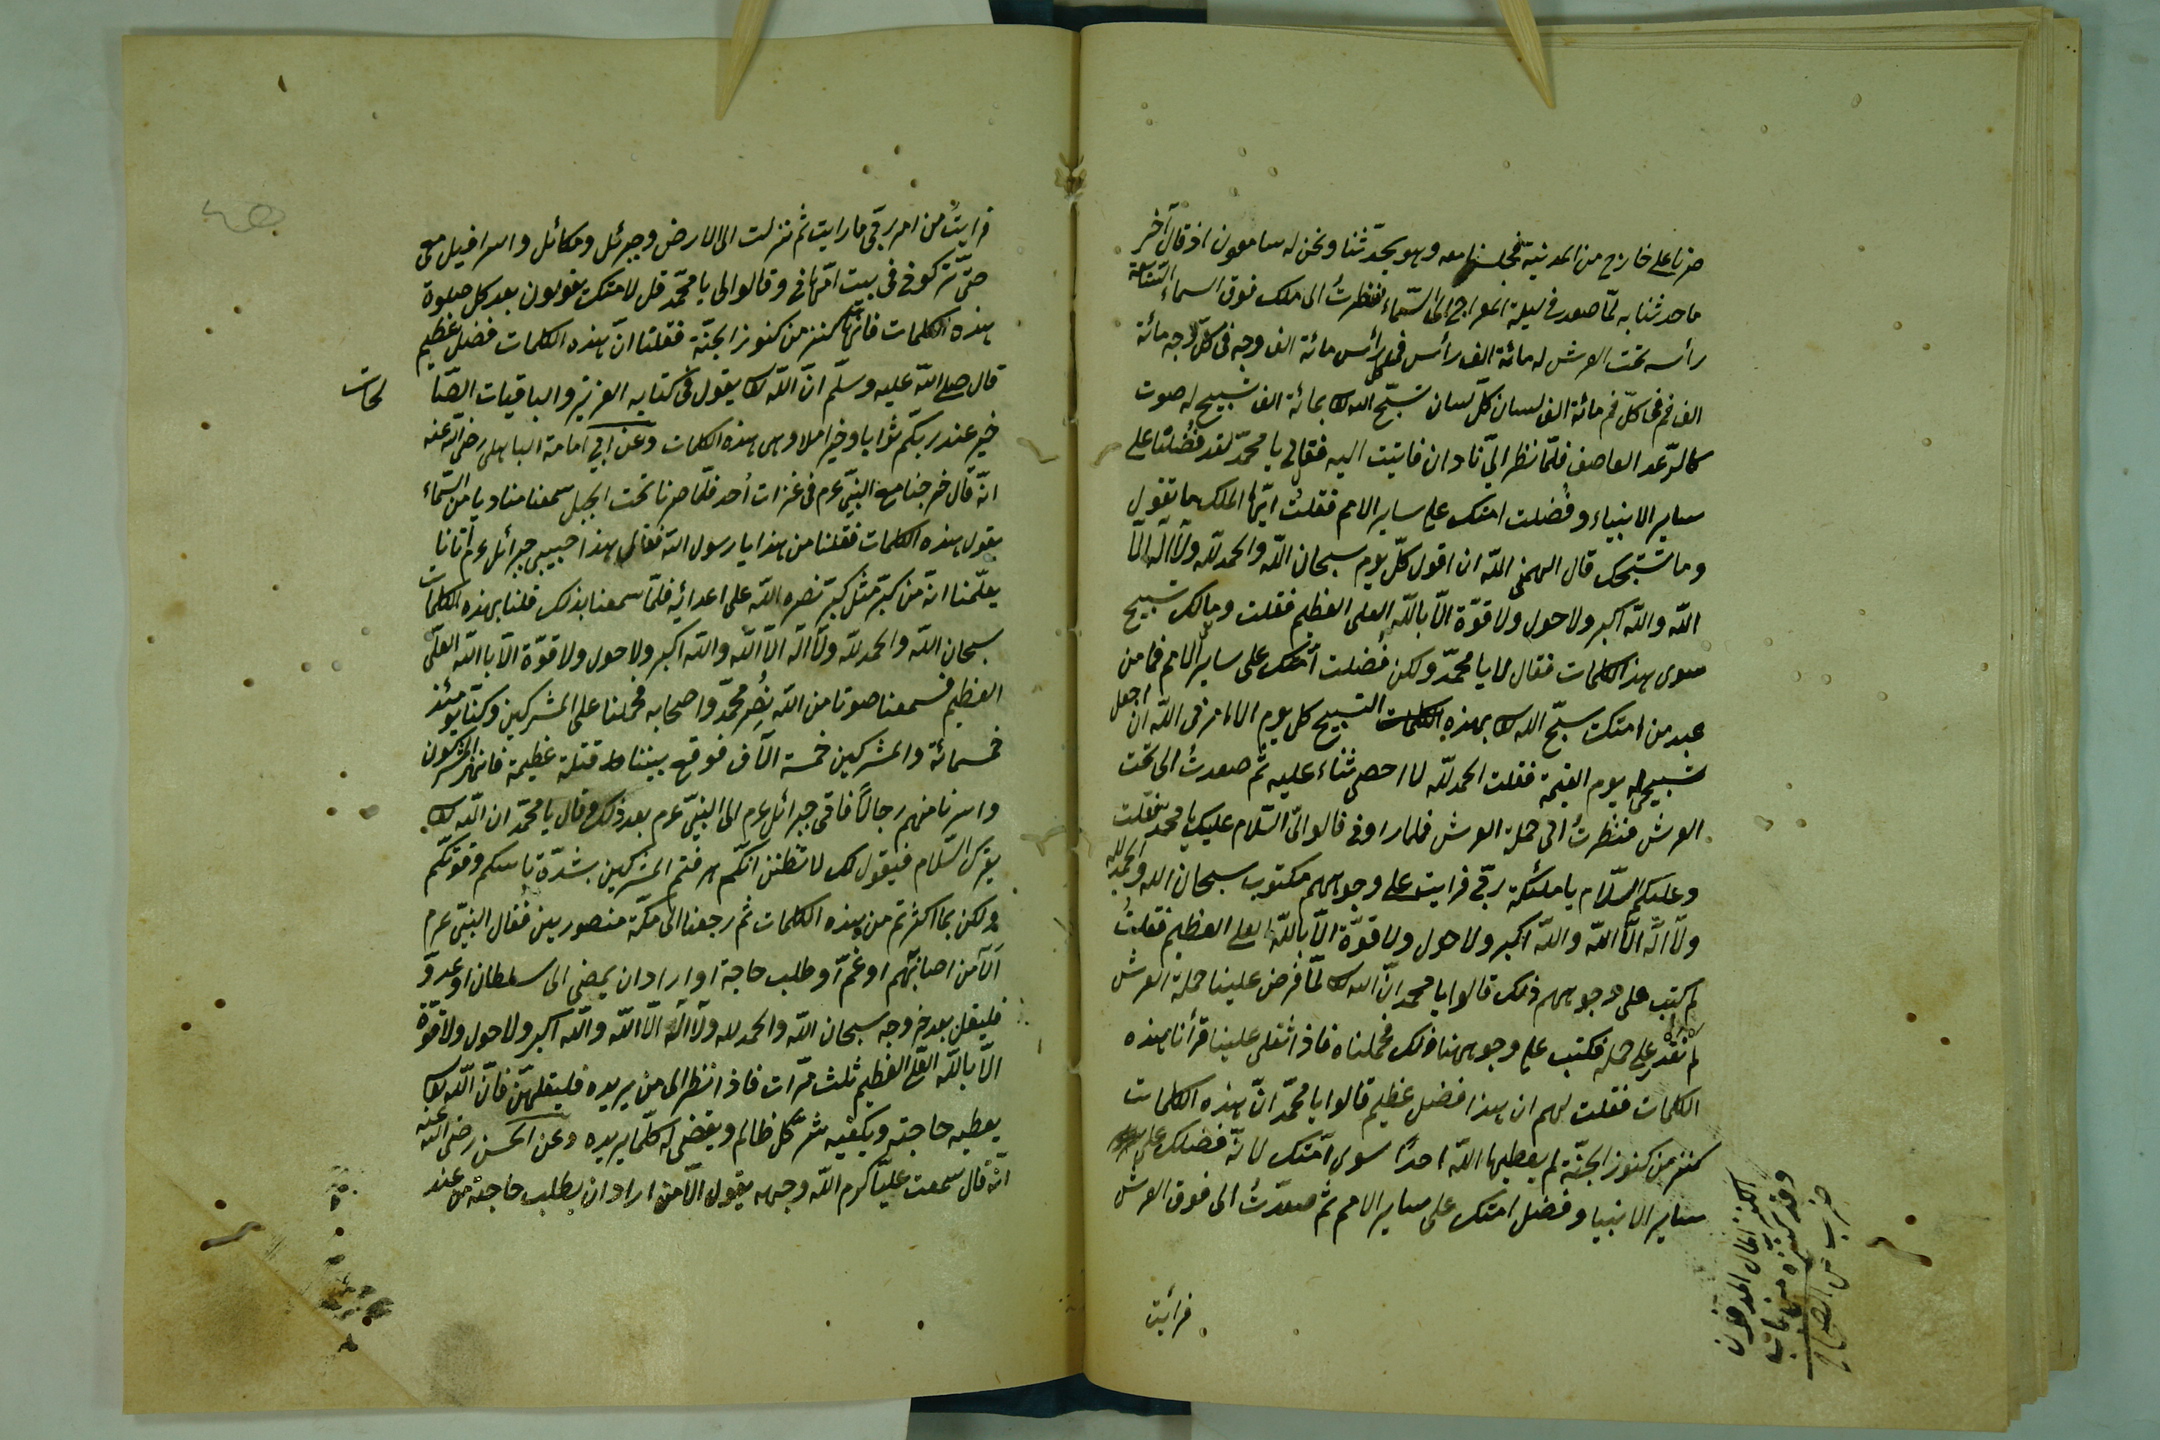 صرنا على خارج من المدينة فجلسنا معه وهو يحدّثنا ونحن له سامعون اذ قال آخر
ما حدثنا به لمّا صعد في ليلة المعراج الى السّماء فنظرتُ الى ملك فوق السماء السّابعة
رأسه تحت العرش له مائة الف رأس في كل رأس مائة الف وجه في كلّ وجه مائة
الف فم في كلّ فم مائة الف لسان كلّ لسان تسبّح الله تعالى بمائة الف تسبيح له صوت
كالرّعد العاصف فلمّا نظر اليّ نادان فاتيت اليه فقال لي يا محمّد لقد فُضلت على
ساير الانبياء وفُضلت امتك على ساير الامم فقلت ايّها الملك ما تقول
وما تسبيحك قال الهمنى الله ان اقول كلّ يوم سبحان الله والحمد للّه ولآ اله الّا
اللّه واللّه اكبر ولا حول ولا قوّة الّا باللّه العلى العظيم فقلت ومالك تسبيح
سوى هذه الكلمات فقال لا يا محمّد ولكن فُضلت امّتك على ساير الامم فما من
عبد من امتك سبّح الله تعالى بهذه الكلمات التسبيح كل يوم الا امرنى اللّه ان اجعل
تسبيحى له يوم القيمة فقلت الحمد للّه لا احصى ثناء عليه ثم صعدتُ الى تحت
العرش فنظرتُ الى حملة العرش فلما راونى قالوا لى السّلام عليك يا محمّد فقلت
وعليكم السّلام يا ملئكة ربّى فرايت على وجوههم مكتوب سبحان الله والحمد لله
ولآ اله الّا اللّه واللّه اكبر ولا حول ولا قوّة الّا باللّه العلى العظيم فقلتُ
لم كتب على وجوههم ذلك قالوا يا محمد انّ الله تعالى لمّا فرض علينا حملة العرش
لم نقدر على حمله فكتب على وجوهنا ذلك فحملناه فاذا ثقل علينا قرأنا هذه
الكلمات فقلت لهم ان هذا فضل عظيم قالوا يا محمّد انّ هذه الكلمات
كنز من كنوز الجنّة لم يعطيها اللّه احدًا سوى امّتك لانّه فضلك على
ساير الانبيا وفضل امتك على ساير الامم ثم صعدتُ الى فوق العرش
فرأيت
فرايتُ من امر ربّى ما رايت ثم نزلت الى الارض وجبرئل ومكائل واسرافيل معى
حتّى تركونى في بيت امّ هانى وقالوا لى يا محمّد قل لامتك يقولون بعد كل صلوة
هذه الكلمات فانّها كنز من كنوز الجنّة فقلنا انّ هذه الكلمات فضل عظيم
قال صلى اللّه عليه وسلّم انّ اللّه تعالى يقول في كتابه العزيز والباقيات الصّا
لحات
خير عند ربكّم ثوابا وخير املا وهى هذه الكلمات وعن ابي امامة الباهلى رضى اللّه عنه
انّه قال خرجنا مع النبيّ عم فى غزات اُحد فلمّا صرنا تحت الجبل سمعنا مناديا من السّماء
يقول هذه الكلمات فقلنا من هذا يا رسول اللّه فقال هذا حبيبى جبرائل عم أتانا
يعلّمنا انّه من كبّر مثل كبّر نصره اللّه على اعدائه فلمّا سمعنا بذلك قلنا هذه الكلمات
سبحان اللّه والحمد للّه ولآ اله الّا اللّه واللّه اكبر ولا حول ولا قوّة الّا بااللّه العلّى
العظيم فسمعنا صوتا من اللّه نُصِر محمّد واصحابه فحملنا على المشركين وكنّا يومئذ
خمسمائة والمشركين خمسة آلآف فوقع بيننا قتلة عظيمة فانهزم المشركون
واسرنا منهم رجالًا فاتى جبرائل عم الى النبيّ عم بعد ذلك وقال يا محمّد ان اللّه تعالى
يقرك السّلام فيقول لك لا تظنن انكّم هزمتم المشركين بشدّة باسكم وقوتكّم
ولكن بما اكثرتم من هذه الكلمات ثم رجعنا الى مكّة منصورين فقال النبيّ عم
الآ من اصابه همّ او غمّ او طلب حاجة او اراد ان يمضى الى سلطان او عدوّ
فليقل بعد خروجه سبحان اللّه والحمد لله ولآ اله الّا اللّه واللّه اكبر ولا حول ولا قوّة
الّا باللّه العلّى العظيم ثلث مرّات فاذا نظر الى من يريده فليقلهنّ فانّ اللّه تعالى
يعطيه حاجته ويكفيه شرّ كلّ ظالم ويقضى له كلّما يريده وعن الحسن رضى اللّه عنه
انّه قال سمعت عليّا كرم اللّه وجهه يقول الآ من اراد ان يطلب حاجة من عند